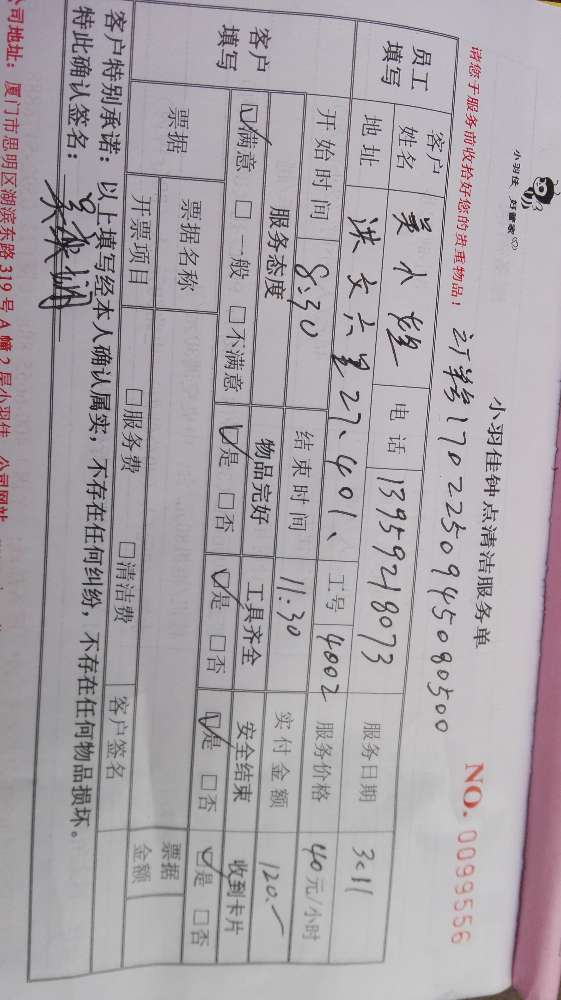 小羽佳 好管家
小羽佳钟点清洁服务单
NO. 0099556
请您于服务前收拾好您的贵重物品!
订单号1702250945080500
员工填写 客户姓名 吴小 电话 13959218073 服务日期 3c11
地址 洪文六里27、401、 工号 4002 服务价格 40元/小时
开始时间 8:30 结束时间 11:30 实付金额 120.-
客户填写 服务态度 物品完好 工具齐全 安全结束 收到卡片
☑满意 □一般 □不满意 ☑是 □否 ☑是 □否 ☑是 □否 ☑是 □否
票据 票据名称 票据金额
开票项目 □服务费 □清洁费 客户签名
客户特别承诺:以上填写经本人确认属实,不存在任何纠纷,不存在任何物品损坏。
特此确认签名:
公司地址:厦门市思明区湖滨东路319号A幢2层小羽佳 公司网站